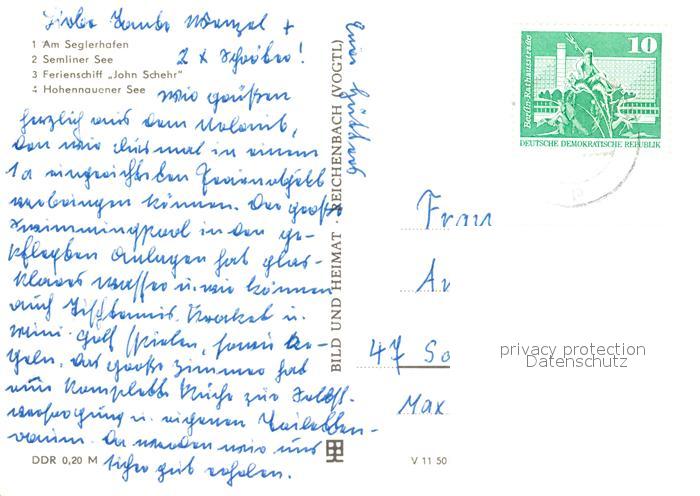 Liebe Tante Wenzel +
2 x Schröber!
1 Am Seglerhafen
2 Semliner See
3 Ferienschiff „John Schehr"
4 Hohennauener See
wir grüßen
herzlich aus dem Urlaub,
den wir diesmal in einem
1a eingerichteten Ferienobjekt
verbringen können. Der große
Swimmingpool in den ge-
pflegten Anlagen hat glas-
klares Wasser u. wir können
auch Tischtennis, Kroket u.
mini-golf spielen, sowie ke-
geln. das große Zimmer hat
eine komplette Küche zur Selbst-
versorgung u. eigenen Toiletten-
raum. Da werden wir uns
sicher gut erholen.
Eure
DDR 0,20 M
BILD UND HEIMAT · REICHENBACH (VOGTL)
V 11 50
10
Berlin-Rathausstraße
DEUTSCHE DEMOKRATISCHE REPUBLIK
Frau
47 So
Max
privacy protection
Datenschutz